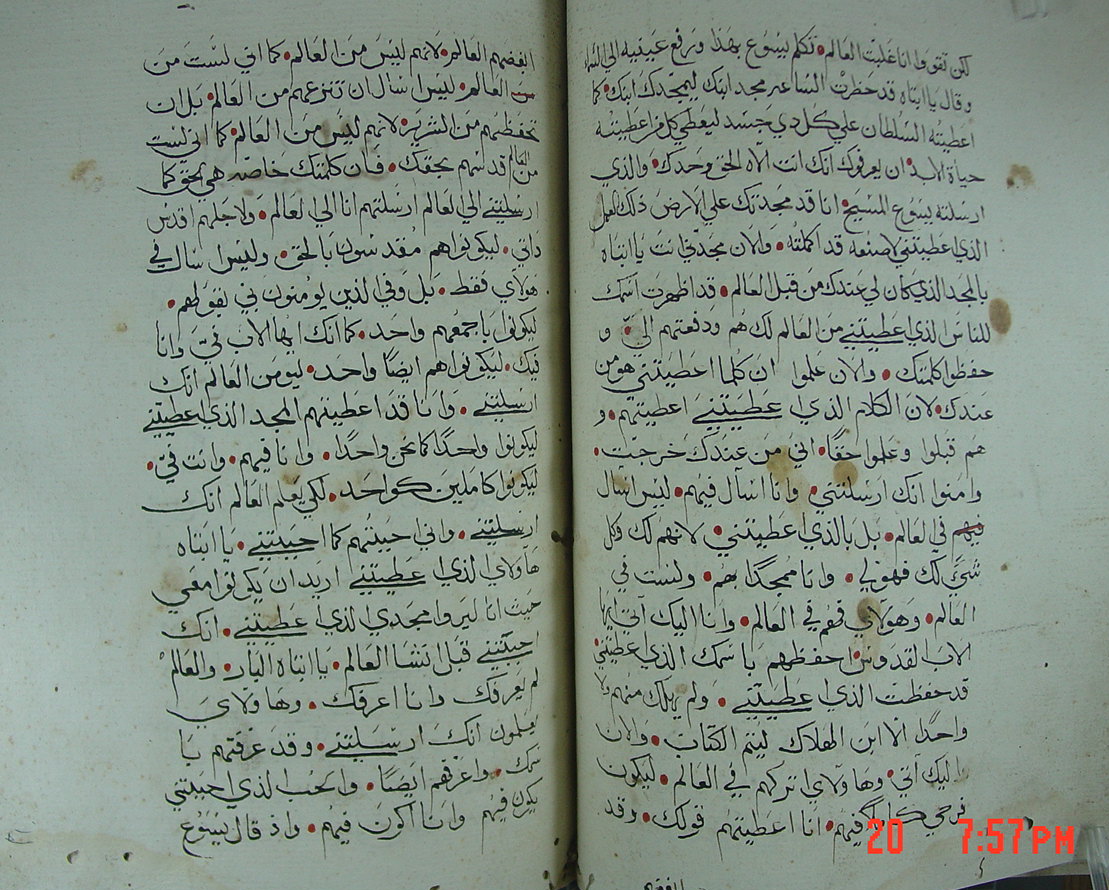 لكن تقووا انا غلبت العالم • تكلم يسوع بهذا ورفع عينيه الي السما
وقال يا ابتاه قد حظرت الساعه مجد ابنك ليمجدك ابنك • كما
اعطيته السلطان علي كل دي جسد ليعطي كل من اعطيته
حياة الابد • ان يعرفوك انك انت الاه الحق وحدك • والذي
ارسلته يسوع المسيح • انا قد مجدتك علي الارض ذلك العمل
الذي اعطيتني لاصنعه قد اكملته • والان مجدني انت يا ابتاه
بالمجد الذي كان لي عندك من قبل العالم • قد اظهرت اسمك
للناس الذي اعطيتني من العالم لك هم ودفعتهم الي • و
حفظوا كلمتك • والان علموا ان كلما اعطيتني هو من
عندك • لان الكلام الذي اعطيتني اعطيتهم • و
هم قبلوا وعلموا حقا • اني من عندك خرجت •
وامنوا انك ارسلتني • وانا اسال فيهم • ليس اسال
فيهم في العالم • بل بالذي اعطيتني • لانهم لك وكل
شي لك فهو لي • وانا ممجدا بهم • ولست في
العالم • وهولاي فهم في العالم • وانا اليك آتي ايها
الاب القدوس احفظهم باسمك الذي اعطيتني
قد حفظت الذي اعطيتني • ولم يهلك منهم ولا
واحدا الا ابن الهلاك ليتم الكتاب • والان
اليك آتي • وهاولاي اتركهم في العالم • ليكون
فرحي كامل فيهم • انا اعطيتهم قولك • وقد
ابغضهم العالم • لانهم ليس من العالم • كما اني لست من
من العالم • ليس اسال ان تنزعهم من العالم • بل ان
تحفظهم من الشرير • لانهم ليس من العالم • كما اني لست
من العالم قدسهم بحقك • فان كلمتك خاصه هي بحق كما
ارسلتني الي العالم ارسلتهم انا الي العالم • ولاجلهم اقدس
داتي • ليكونوا هم مقدسون بالحق • وليس اسال في
هولاي فقط • بل وفي الذين يومنون بي بقولهم •
ليكونوا باجمعهم واحد • كما انك ايها الاب في وانا
فيك • ليكونوا هم ايضا واحد • ليومن العالم انك
ارسلتني • وانا قد اعطيتهم المجد الذي اعطيتني
ليكونوا واحدا كما نحن واحدا • وانا فيهم • وانت في •
ليكونوا كاملين كواحد • لكي يعلم العالم انك
ارسلتني • واني احببتهم كما احببتني • يا ابتاه
هاولاي الذي اعطيتني اريد ان يكونوا معي
حيث انا ليروا مجدي الذي اعطيتني • انك
احببتني قبل انشا العالم • يا ابتاه البار • والعالم
لم يعرفك وانا اعرفك • وهاولاي
يعلمون انك ارسلتني • وقد عرفتهم با
سمك • واعرفهم ايضا • والحب الذي احببتني
يكون فيهم وانا اكون فيهم • واذ قال يسوع
20 7:57PM